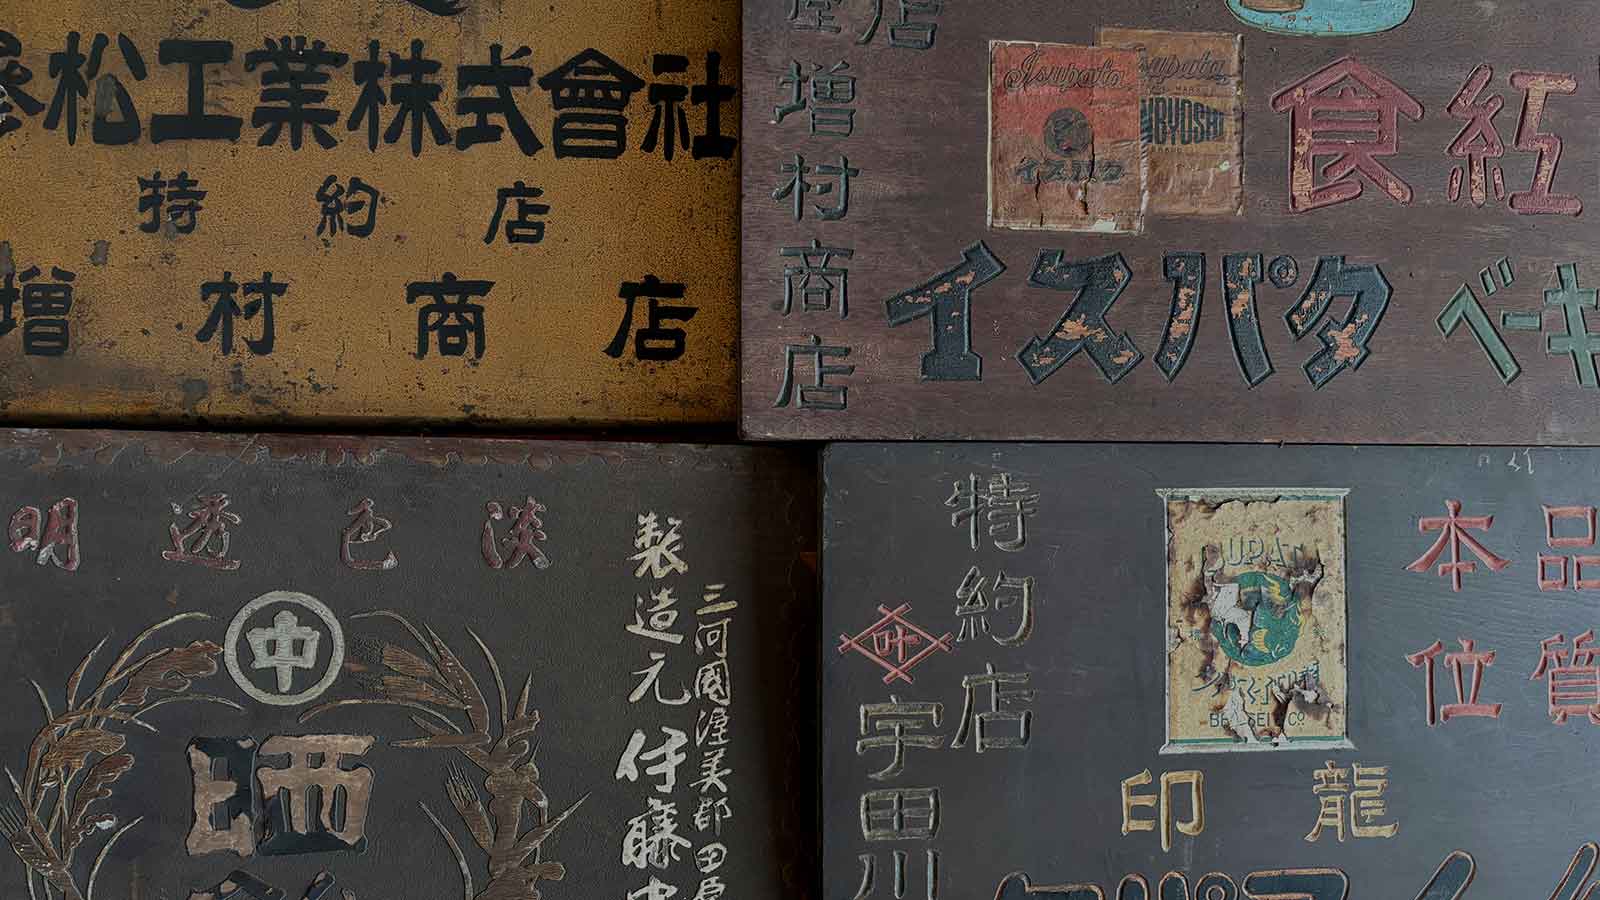 松工業株式會社
特約店
増村商店
店
増村商店
Isuzata
イスパタ
食紅
イスパタ
ベーキ
明透色淡
中
晒
製造元 伊藤
三河國渥美郡田原
特約店
叶
宇田川
本品
位質
印龍